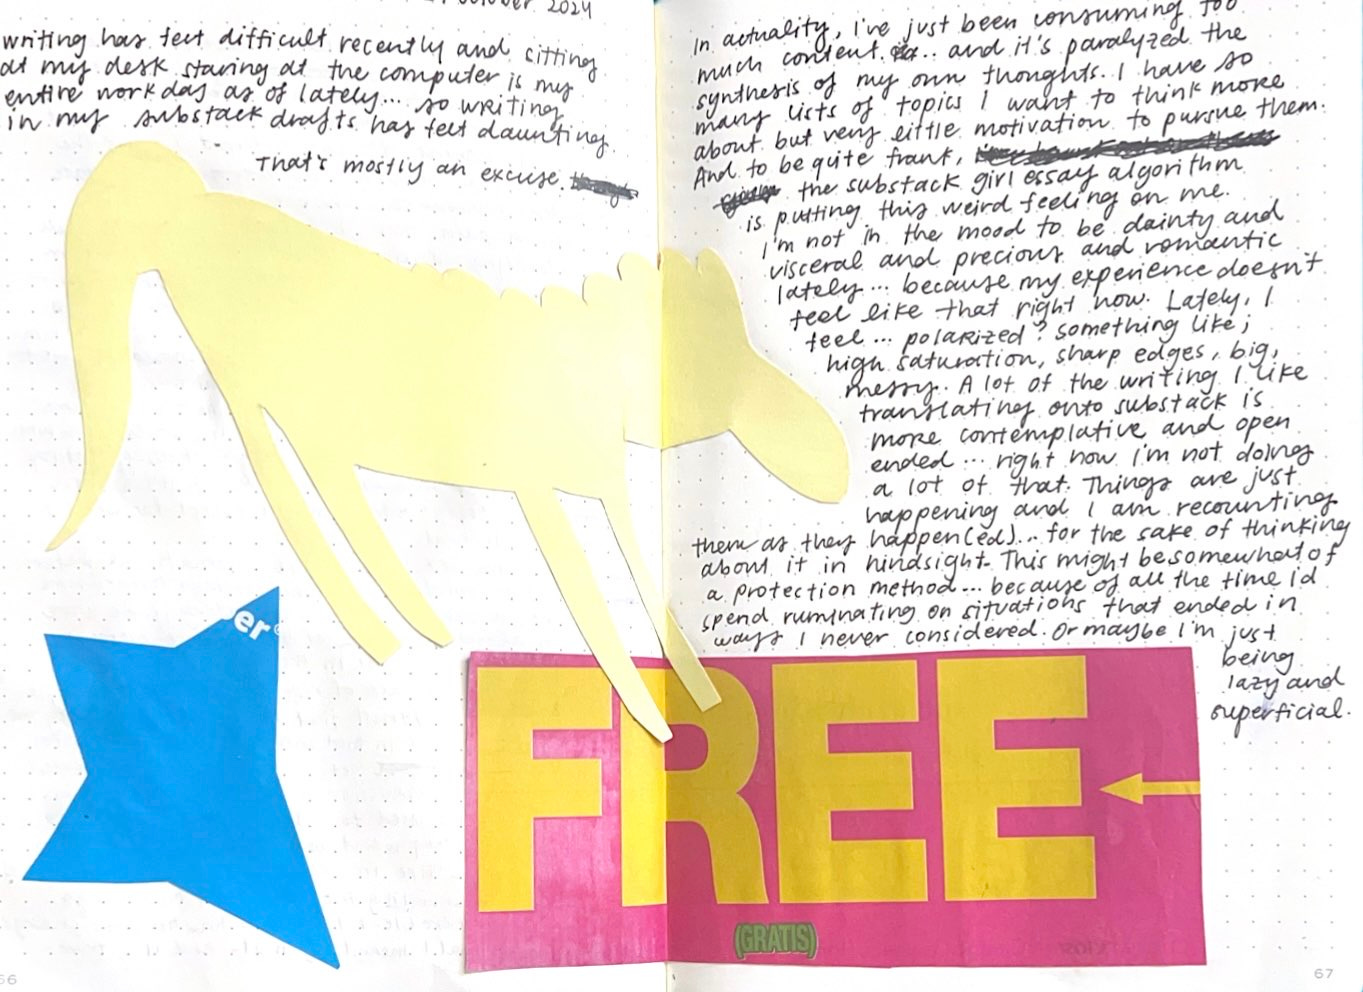 October 2024
writing has felt difficult recently and sitting
at my desk staring at the computer is my
entire workday as of lately... so writing
in my substack drafts has felt daunting.
That's mostly an excuse.
In actuality, I've just been consuming too
much content... and it's paralyzed the
synthesis of my own thoughts. I have so
many lists of topics I want to think more
about but very little motivation to pursue them.
And to be quite frank,
the substack girl essay algorithm
is putting this weird feeling on me.
I'm not in the mood to be dainty and
visceral and precious and romantic
lately... because my experience doesn't
feel like that right now. Lately, I
feel... polarized? something like;
high saturation, sharp edges, big,
messy. A lot of the writing I like
translating onto substack is
more contemplative and open
ended... right now i'm not doing
a lot of that. Things are just
happening and I am recounting
them as they happen(ed)... for the sake of thinking
about it in hindsight. This might be somewhat of
a protection method... because of all the time i'd
spend ruminating on situations that ended in
ways I never considered. Or maybe I'm just
being
lazy and
superficial.
er
FREE
(GRATIS)
67